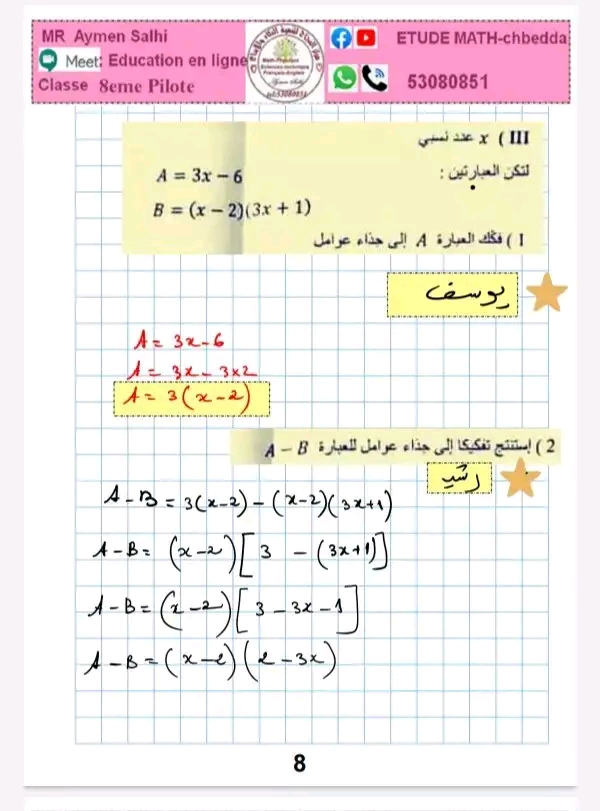 MR Aymen Salhi
Meet: Education en ligne
Classe 8eme Pilote
ETUDE MATH-chbedda
53080851
III ) x عدد نسبي
لتكن العبارتين :
A = 3x − 6
B = (x − 2)(3x + 1)
1 ) فكّك العبارة A إلى جذاء عوامل
يوسف
A = 3x - 6
A = 3x - 3×2
A = 3(x-2)
2 ) إستنتج تفكيكا إلى جذاء عوامل للعبارة A − B
رشيد
A - B = 3(x-2) - (x-2)(3x+1)
A - B = (x-2)[3 - (3x+1)]
A - B = (x-2)[3 - 3x - 1]
A - B = (x-2)(2-3x)
8